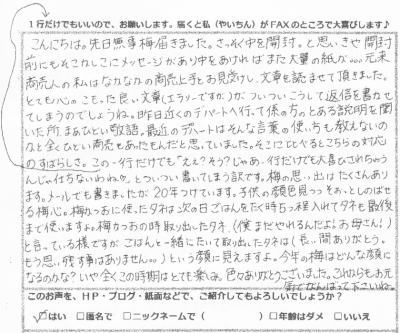 1行だけでもいいので、お願いします。届くと私(やいちん)がFAXのところで大喜びします♪
こんにちは。先日無事梅届きました。さっそく中を開封。と思いきや開封
前にもそこかしこにメッセージがあり中をあければまた大量の紙が…。元来
商売人の私はなかなかの商売上手とお見受けし、文章を読ませて頂きました。
とても心のこもった良い文章(エラソーですが)がついついこうして返信を書かせ
てしまうのでしょうね。昨日近くのデパートへ行って係の方のとある説明を聞
いた所まあひどい敬語。最近のデパートはそんな言葉の使い方も教えないの
かと全くひどい商売もあったもんだと思っていました。そこにひきくらべるとこちらの対応
のすばらしさ。この一行だけでも"ええ?そう?じゃあ一行だけでも大喜びされちゃう
んじゃ仕方ないわね"とついつい書いてしまう訳です。梅の思い出はたくさんあり
ます。メールでも書きましたが20年つけています。子供の顔色見つつそおっとしのばせ
る梅心。梅かつおに使ったタネは次の日ごはんをたく時5ヶ程入れてタネも最後
まで使います。梅かつおの時取り出したタネ(僕まだやれるんだよ!お母さん!)
と言っている様ですがごはんと一緒にたいて取出したタネは(長い間ありがとう。
もう思い残す事はありません…)という顔に見えますよ。今年の梅はどんな顔に
なるのかな?いや全くこの時期はとても楽しみ。色々ありがとうございました。これからもお元
気でがんばって下さいね。
このお声を、HP・ブログ・紙面などで、ご紹介してもよろしいでしょうか?
□はい □匿名で □ニックネームで( ) □年齢はダメ □いいえ